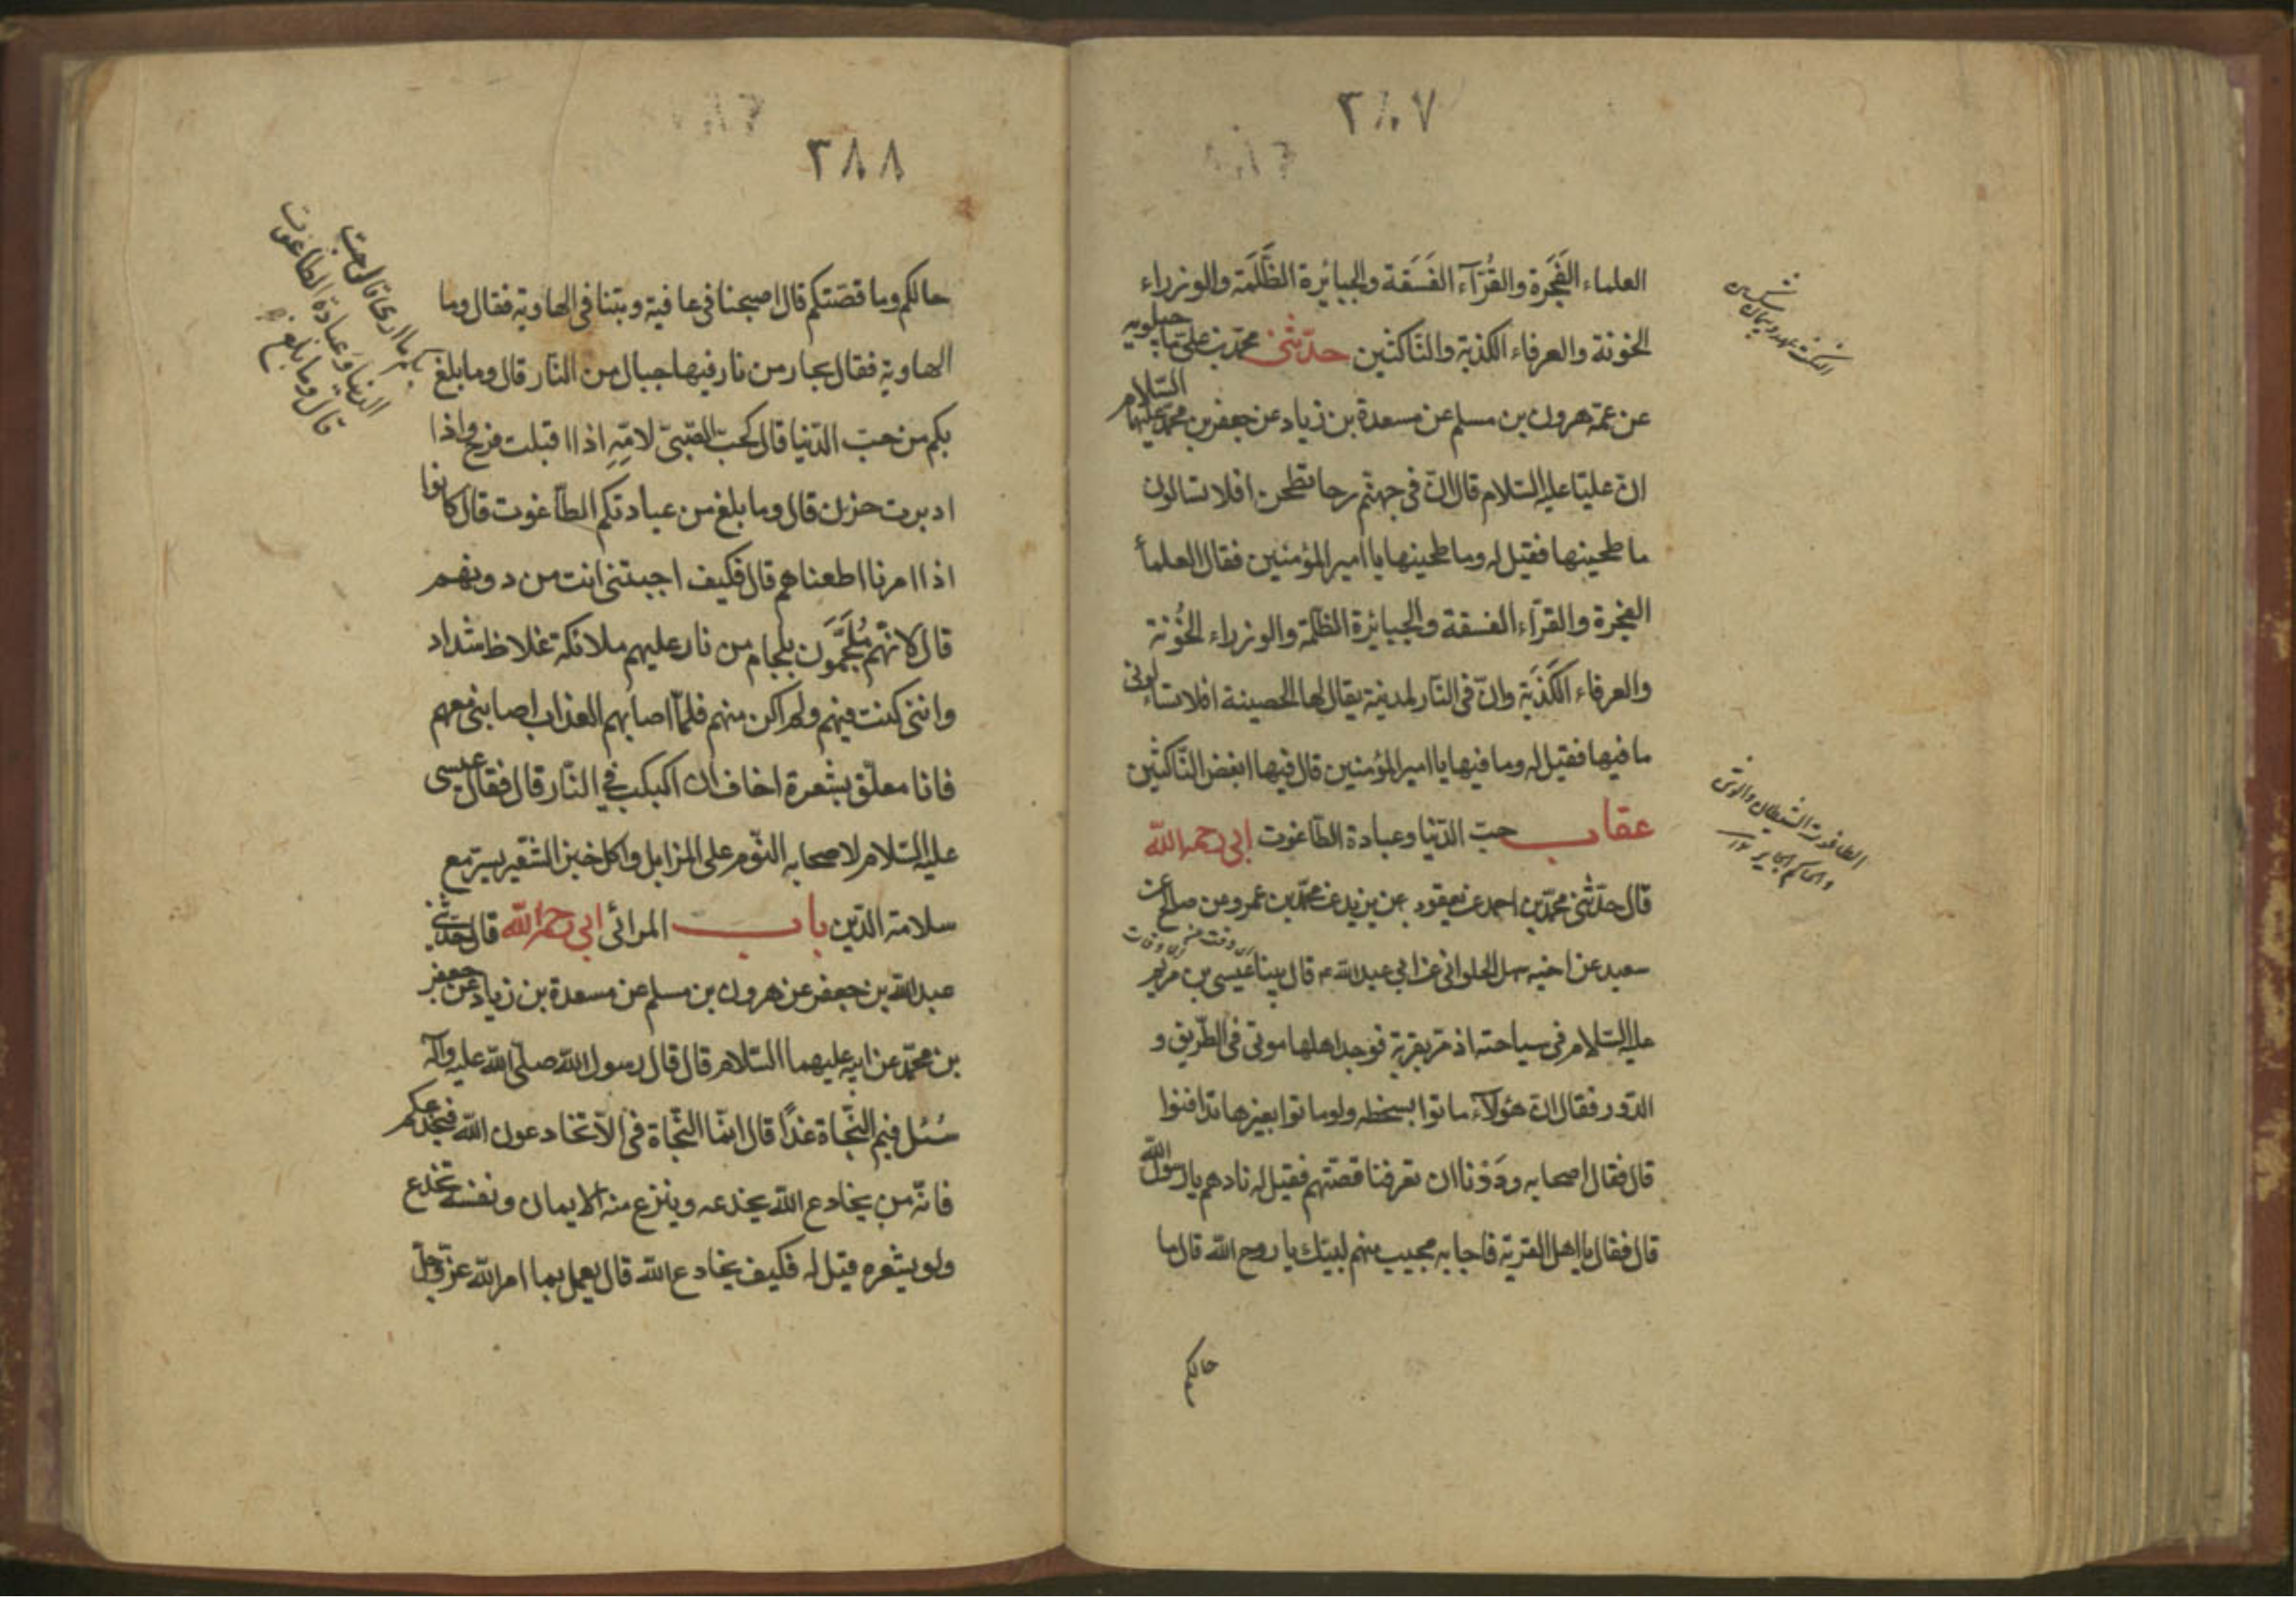 ٣٨٧
العلماء الفَجَرة والقُرّآء الفَسَقة والجبائرة الظَّلَمَة والوزراء
الخونة والعرفاء الكذبة والنّاكثين حدّثنى محمّد بن على ماجيلويه
عن عمّه هرون بن مسلم عن مسعدة بن زياد عن جعفر بن محمّد عليهما السّلام
انّ عليّا عليه السّلام قال انّ فى جهنّم رحا تطحن افلا تسالون
ما طحينها فقيل له وما طحينها يا امير المؤمنين فقال العلمأ
الفجرة والقرّاء الفسقة والجبائرة الظّلمة والوزراء الخُونة
والعرفاء الكَذَبَة وانّ فى النّار لمدينة يقال لها الحصينة افلا تسالونى
ما فيها فقيل له وما فيها يا امير المؤمنين قال فيها ابغض النّاكثين
عقاب حبّ الدّنيا وعبادة الطّاغوت ابى رحمه الله
قال حدّثنى محمّد بن احمد عن يعقوب بن يزيد عن محمّد بن عمرو عن صالح بن
سعيد عن اخيه سهل الحلوانى عن ابى عبد الله ع قال بينا عيسى بن مريم
عليه السّلام فى سياحته اذ مرّ بقرية فوجد اهلها موتى فى الطّريق و
الدّور فقال انّ هؤلآء ماتوا بسخطه ولو ماتوا بغيرها تدافنوا
قال فقال اصحابه وَدَدْنا ان تعرفنا قصّتهم فقيل له نادهم يا رسول الله
قال فقال يا اهل القرية فاجابه مجيب منهم لبيّك يا روح الله قال ما
حالكم
الطاغوت الشيطان والوثن
والحاكم الجاير ١٢
٣٨٨
حالكم وما قصّتكم قال اصبحنا فى عافية وبتنا فى الهاوية فقال وما
الهاوية فقال بحار من نار فيها جبال من النّار قال وما بلغ
بكم من حبّ الدّنيا قال كحبّ الصّبىّ لامّهِ اذا اقبلت فرح واذا
ادبرت حزن قال وما بلغ من عبادتكم الطّاغوت قال كانوا
اذا امرنا اطعناهم قال فكيف اجبتنى انت من دونهم
قال لانّهم مُلجَّمُون بلجام من نار عليهم ملائكة غلاظ شداد
وانّنى كنت فيهم ولم اكن منهم فلمّا اصابهم العذاب اصابنى معهم
فانا معلّق بشعرة اخاف ان اكبكب فى النّار قال فقال عيسى
عليه السّلام لاصحابه النّوم على المزابل واكل خبز الشّعير يسير مع
سلامة الدّين باب المرائى ابى رحمه الله قال حدّثنى
عبد الله بن جعفر عن هرون بن مسلم عن مسعدة بن زياد عن جعفر
بن محمّد عن ابيه عليهما السّلام قال قال رسول الله صلّى الله عليه وآله
سُئل فيم النّجاة غدًا قال انّما النّجاة فى الّا تخادعون الله فيخدعكم
فانّه من يخادع الله يخدعه وينزع منه الايمان ونفسه تخدع
ولو يشعره قيل له فكيف يخادع الله قال يعمل بما امر الله عزّ وجلّ
بكم ما ارى قال حبّ
الدنيا وعبادة الطاغوت
قال وما بلغ